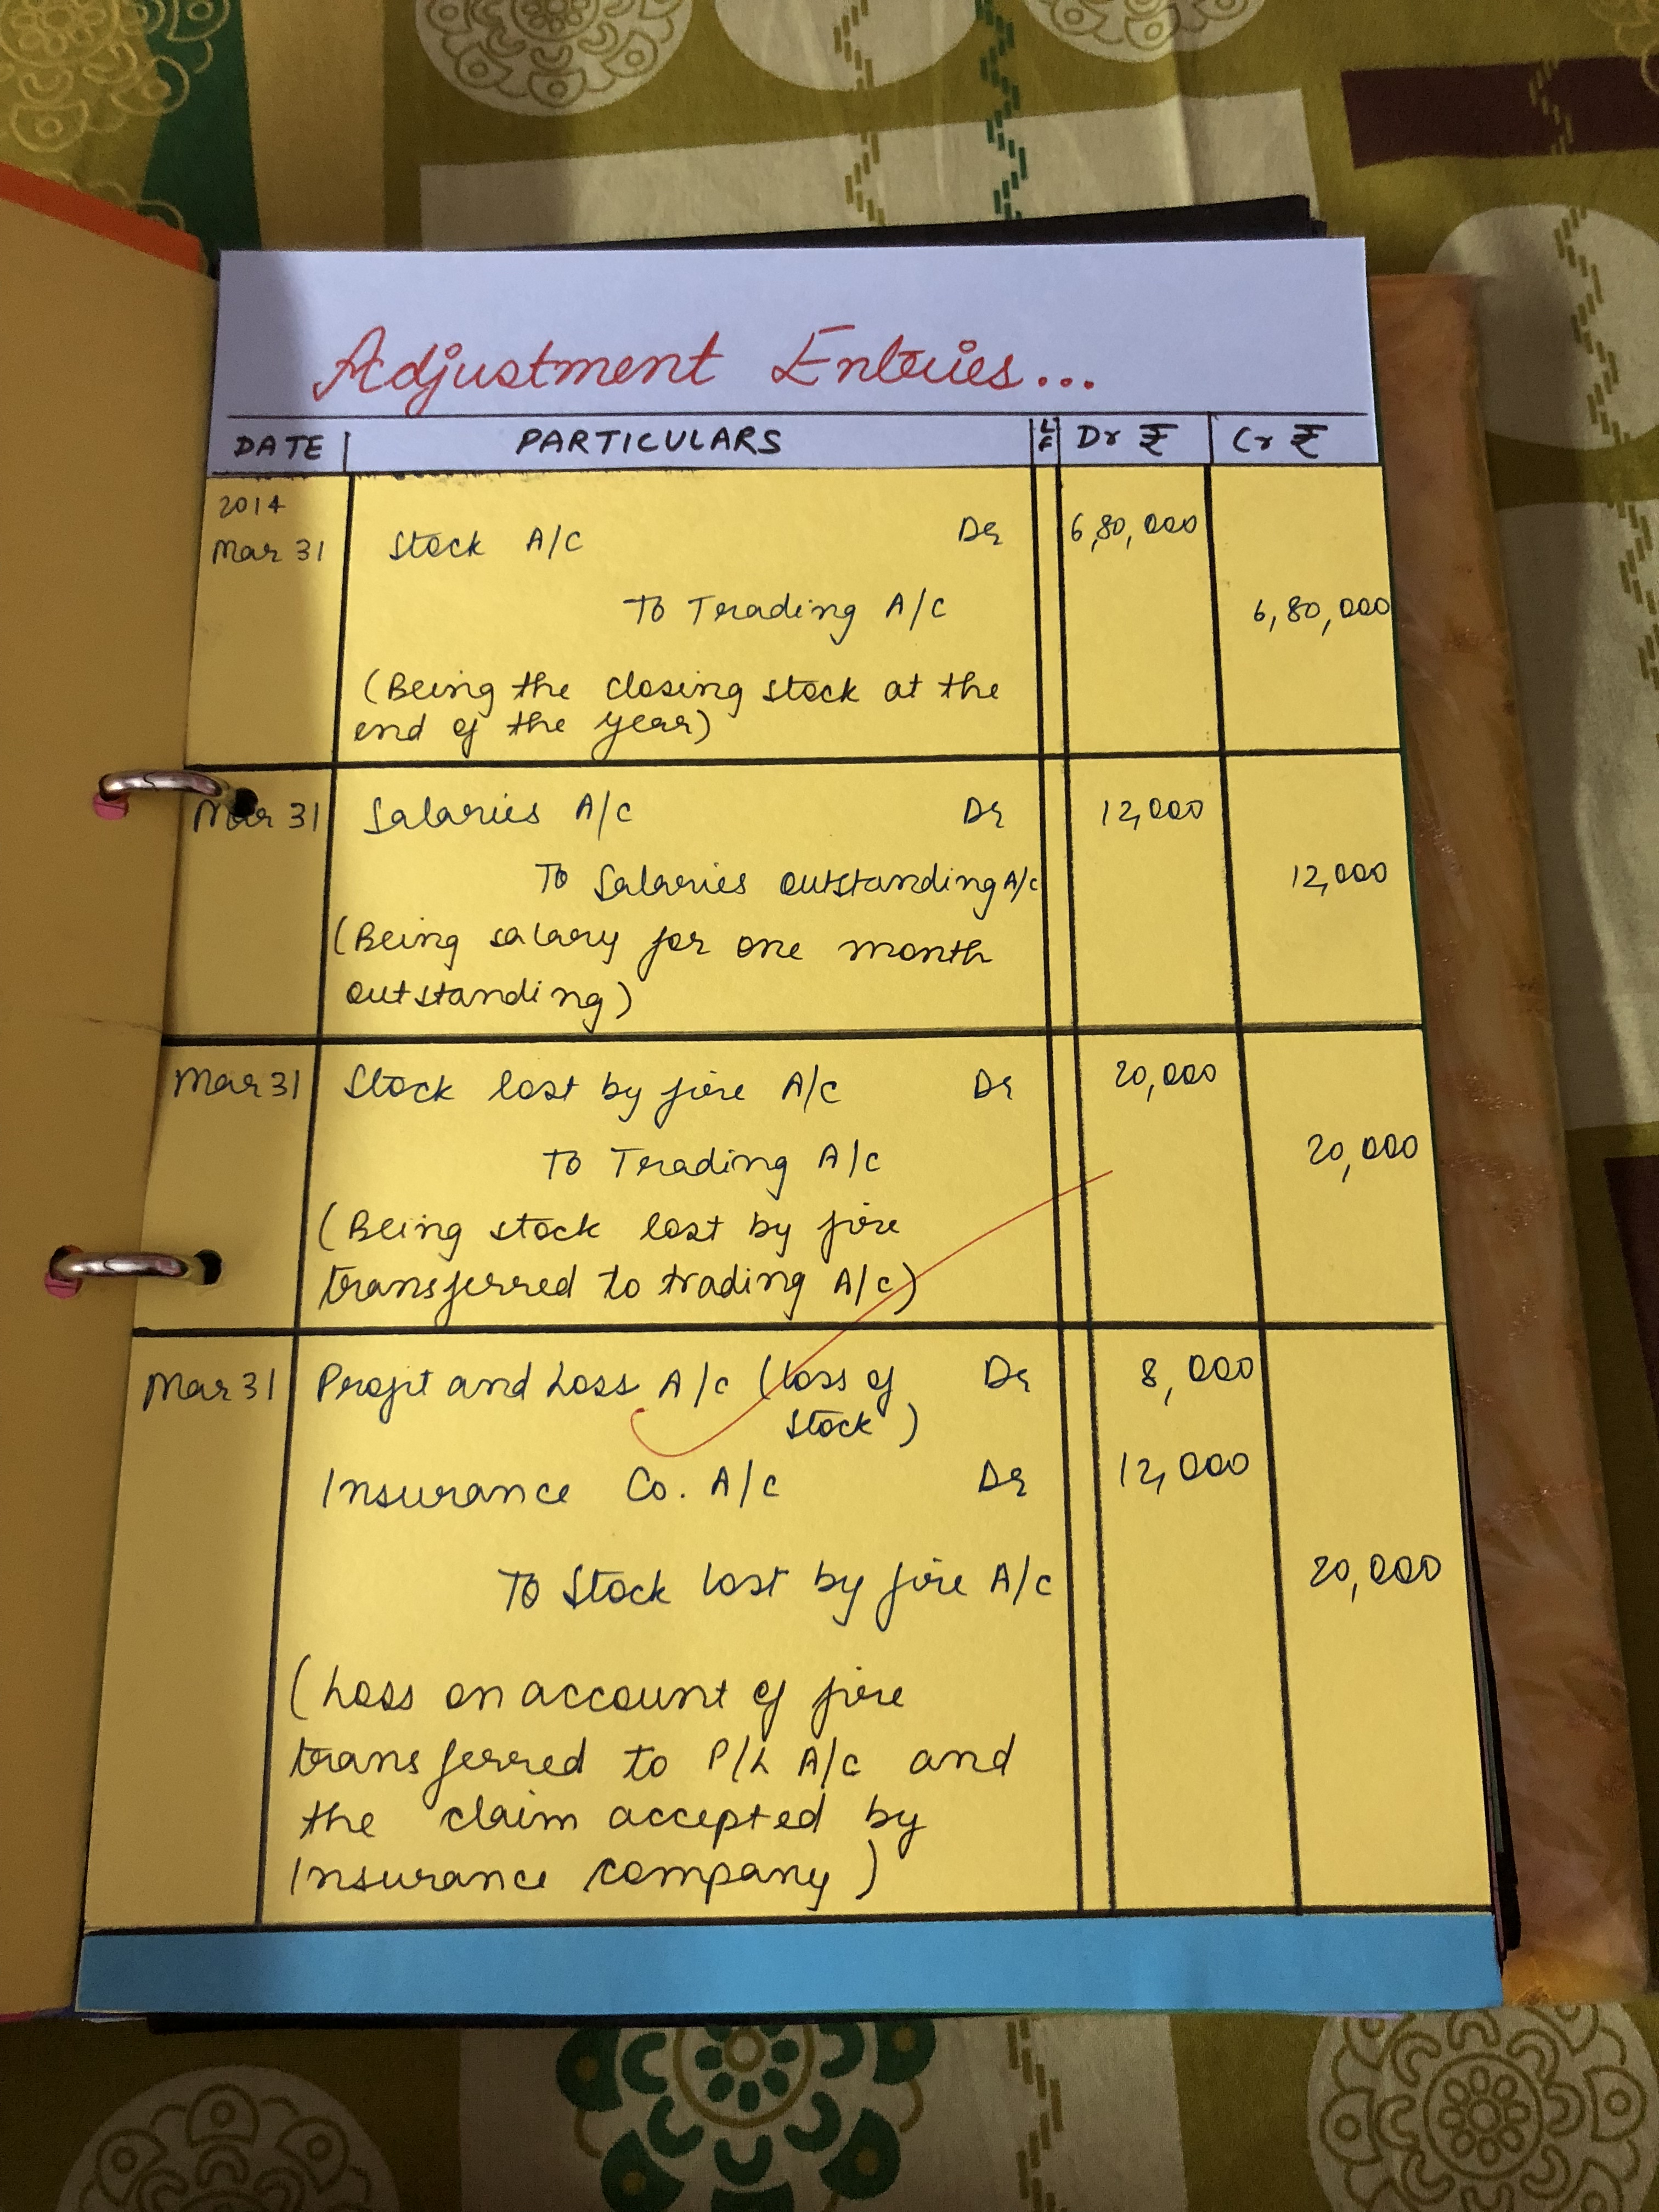 Adjustment Entries...
DATE PARTICULARS LF Dr ₹ Cr ₹
2014
Mar 31 Stock A/C Dr 6,80,000
To Trading A/C 6,80,000
(Being the closing stock at the
end of the year)
Mar 31 Salaries A/C Dr 12,000
To Salaries outstanding A/C 12,000
(Being salary for one month
outstanding)
Mar 31 Stock lost by fire A/C Dr 20,000
To Trading A/C 20,000
(Being stock lost by fire
transferred to trading A/C)
Mar 31 Profit and Loss A/c (loss of Dr 8,000
stock)
Insurance Co. A/C Dr 12,000
To Stock lost by fire A/C 20,000
(Loss on account of fire
transferred to P/L A/C and
the claim accepted by
Insurance company)